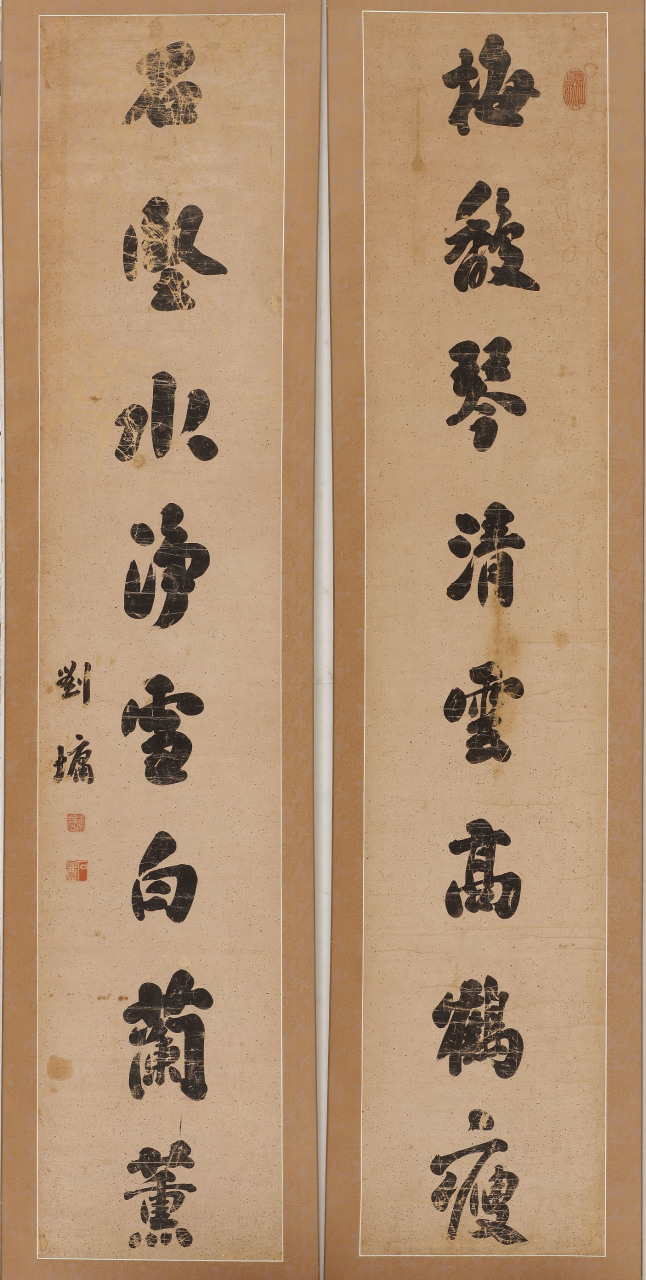 梅馥琴清雲高鶴瘦
石堅水淨雪白蘭薰
劉墉